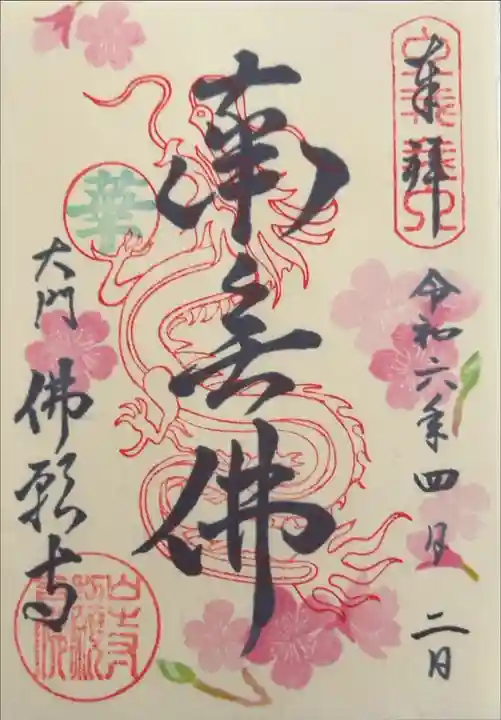 奉拝
令和六年四月二日
南無佛
華
大門
佛願寺